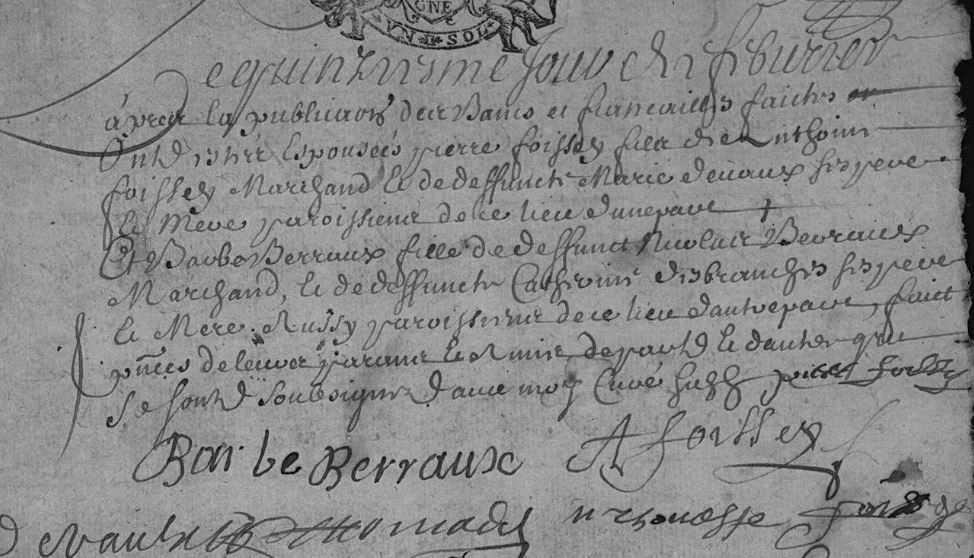 GNE
VN SOL
e quinziesme Jour de febvrier
apres la publication des Bans et fiancailles faictes
Ont estez Espousées pierre foissey filz de Anthoine
foissey Marchand et de deffuncte Marie devaux ses pere
et Mere paroissiens de ce lieu d'une part
Et Barbe Berraux fille de deffunct Nicolas Berraux
Marchand, et de deffuncte Catherine desbranches ses pere
et Mere Aussy paroissienne de ce lieu d'autre part, faict
de leurs parans et Amis de part et d'autre qui
se sont soubsignez avec moy Curé pierre foissey
Barbe Berraux A foissey
devaulx